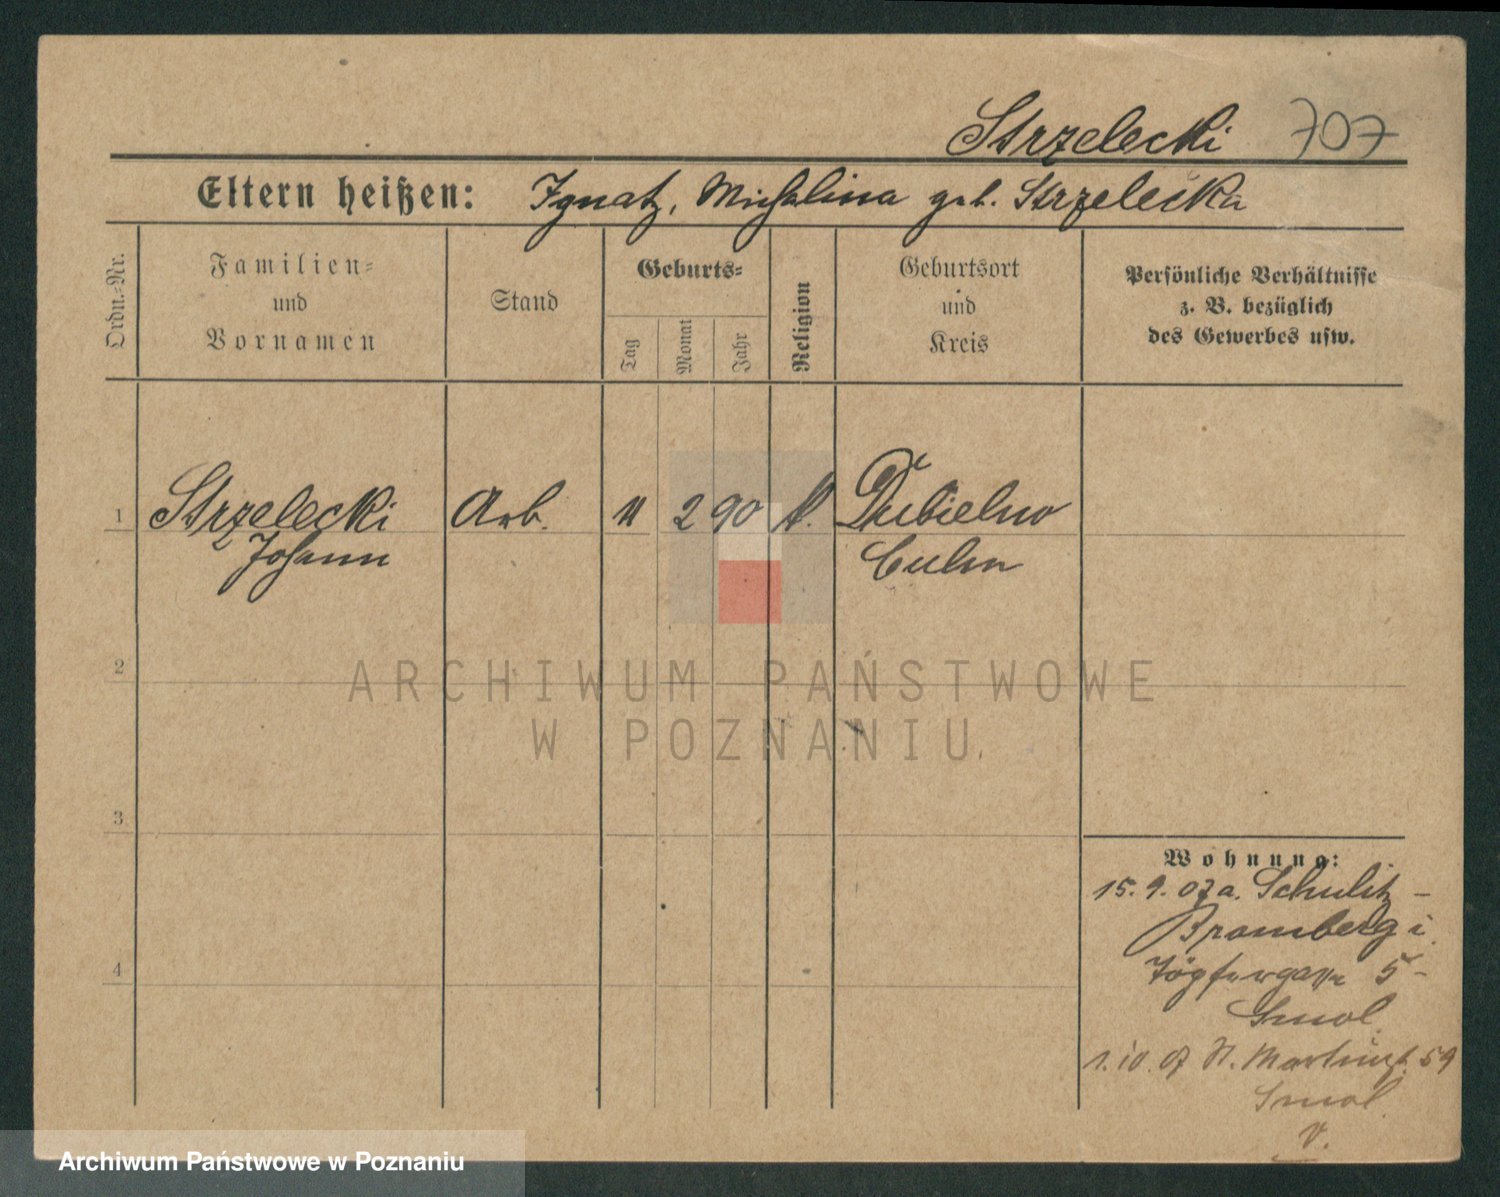 Strzelecki 707
Eltern heißen: Ignatz, Michalina geb. Strzelecka
Ordn.-Nr.
Familien-
und
Vornamen
Stand
Geburts-
Tag
Monat
Jahr
Religion
Geburtsort
und
Kreis
Persönliche Verhältnisse
z. B. bezüglich
des Gewerbes usw.
1 Strzelecki Arb. 11 2 90 k. Dubielno
Johann Culm
2
ARCHIWUM PAŃSTWOWE
W POZNANIU
3
4
Wohnung:
15. 9. 07 a. Schulitz -
Bromberg i.
Töpfergasse 5 -
Smol.
1. 10. 07 St. Martinst. 59
Smol.
V.
Archiwum Państwowe w Poznaniu